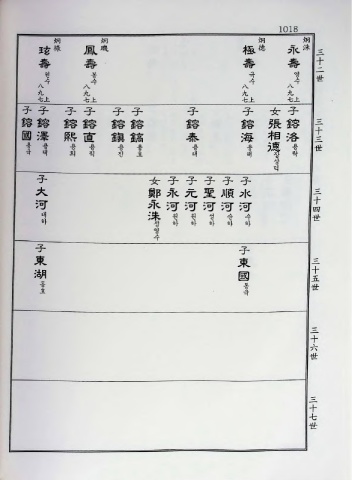 1018
三十二世
炯洙
永壽 영수 八九七上
炯德
極壽 극수 八九七上
鳳壽 봉수 八九七上
玹壽 현수 八九七上
三十三世
子 鎔洛 용락
女 張相德 장상덕
子 鎔海 용해
子 鎔泰 용태
子 鎔鎬 용호
子 鎔鎭 용진
子 鎔直 용직
子 鎔熙 용희
子 鎔澤 용택
子 鎔國 용국
三十四世
子 水河 수하
子 順河 순하
子 聖河 성하
子 元河 원하
子 永河
女 鄭永洙 정영수
子 大河 대하
三十五世
子 東國 동국
子 東湖 동호
三十六世
三十七世